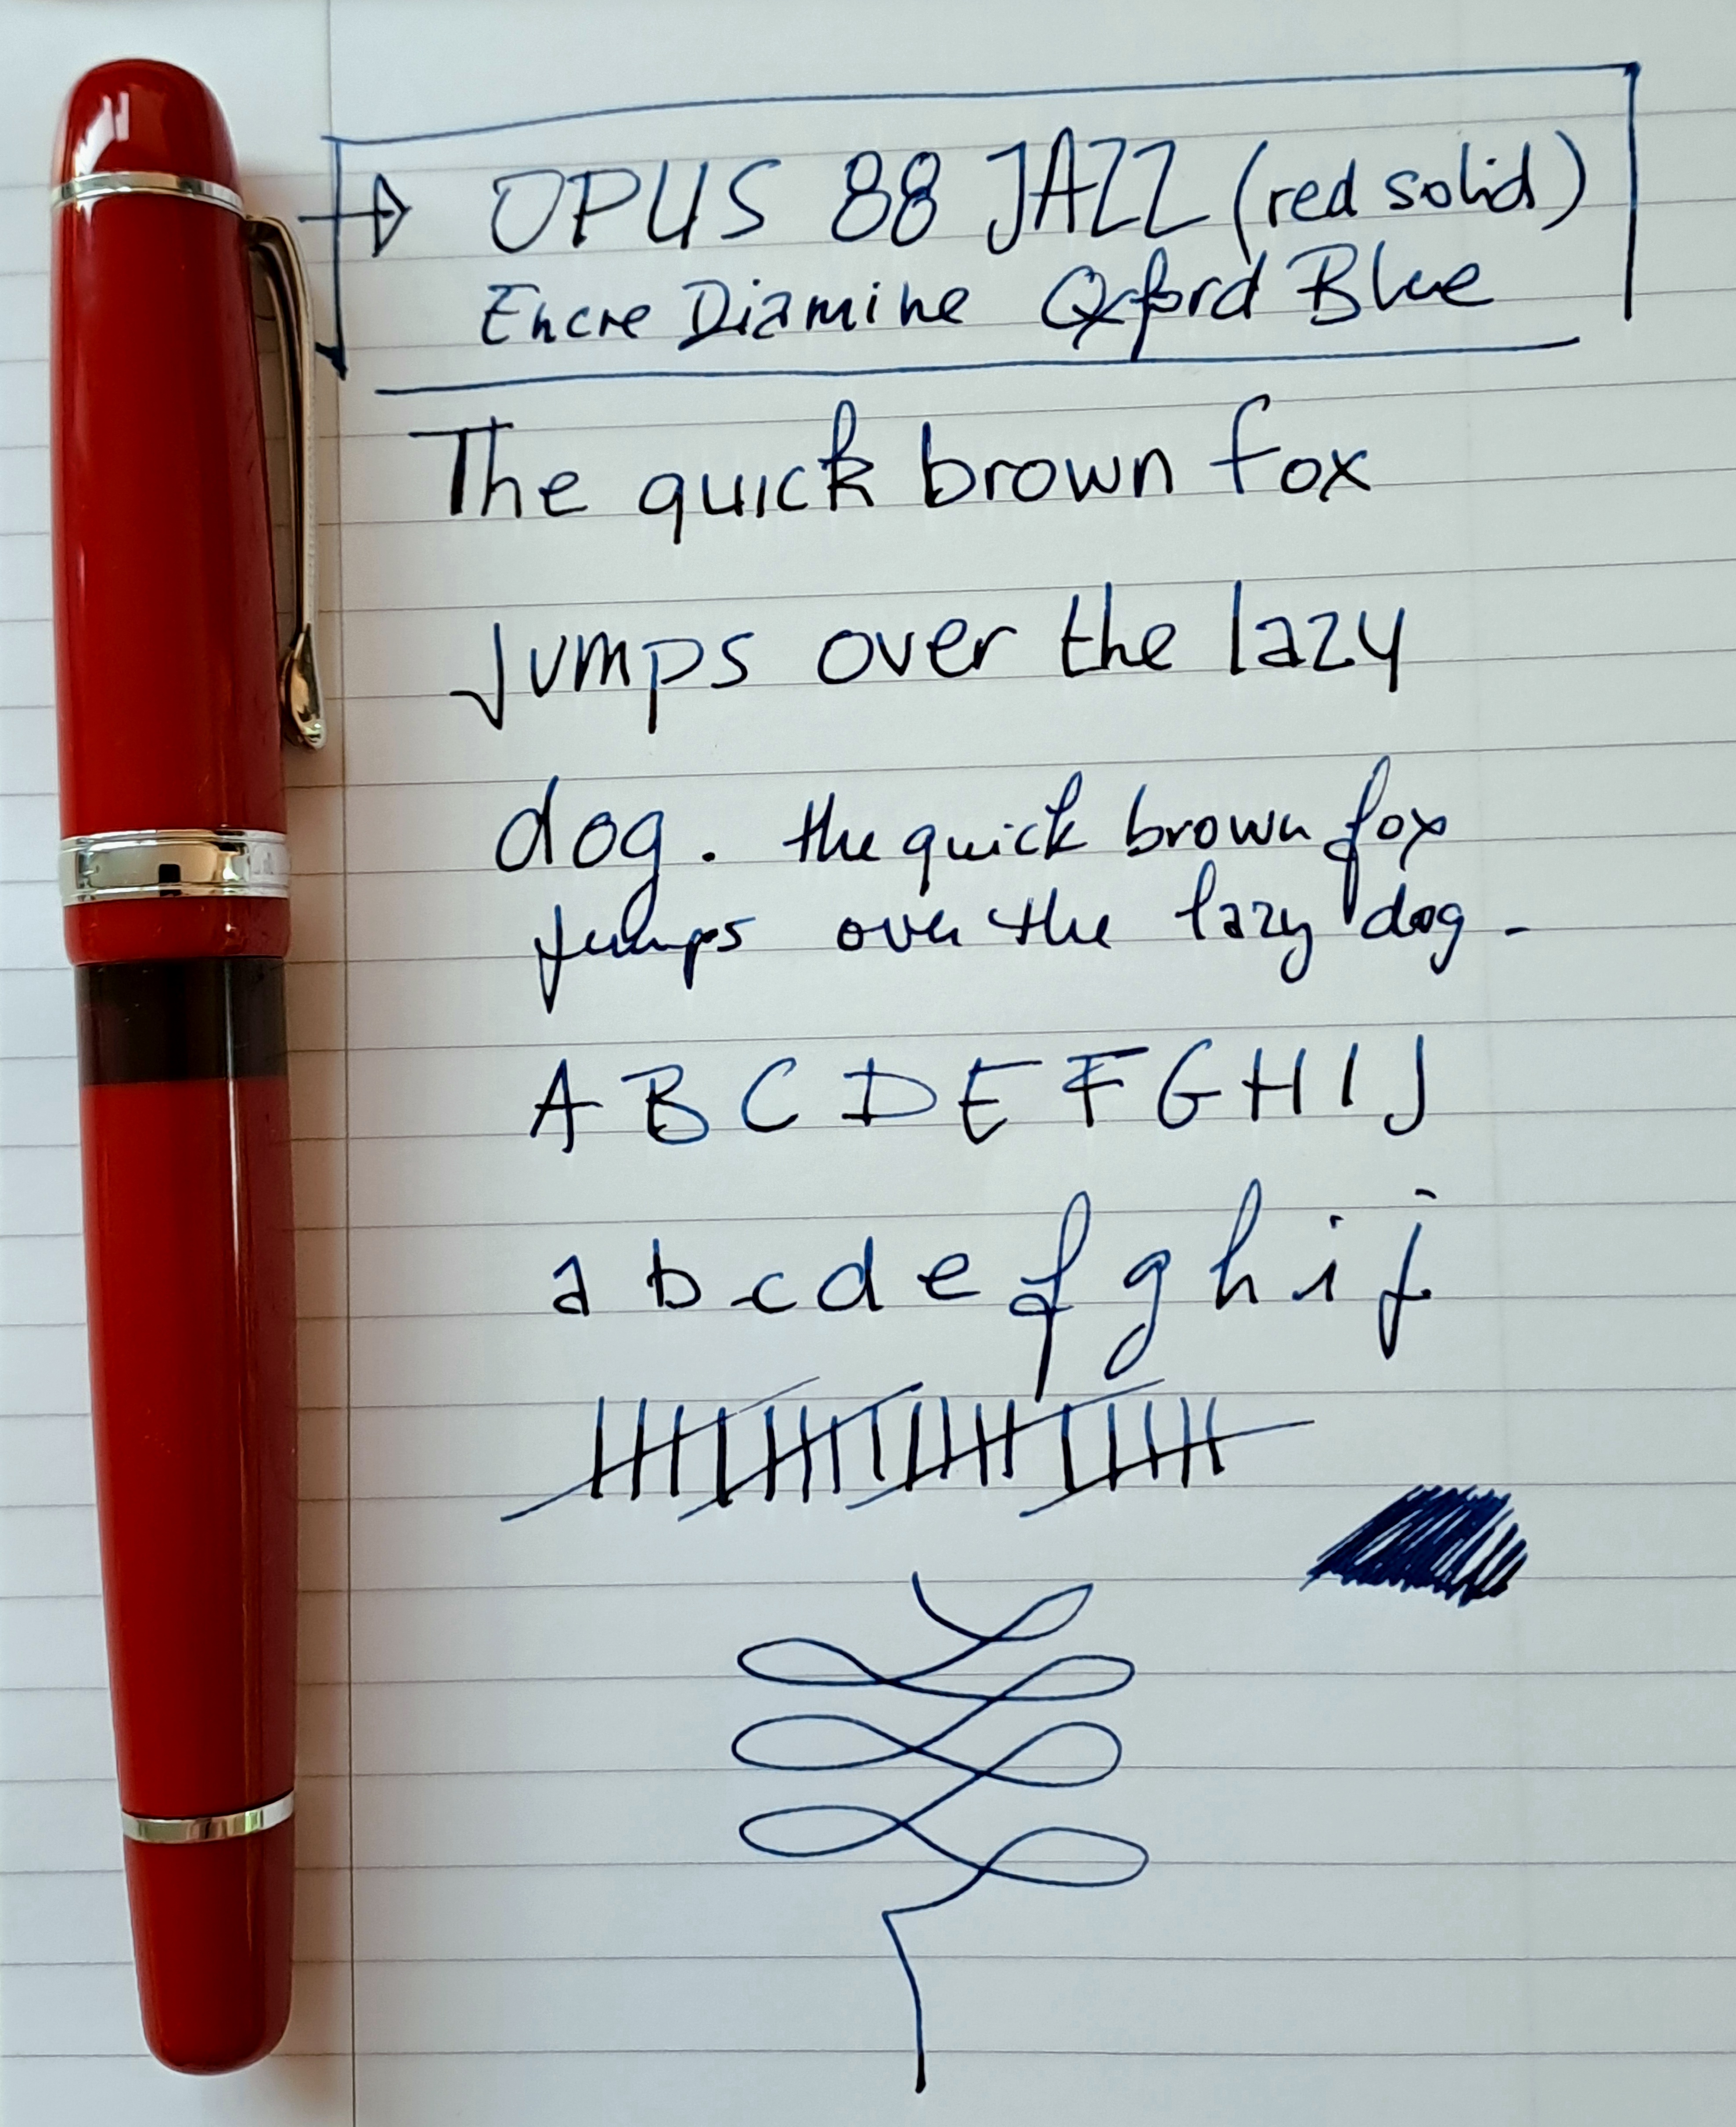 OPUS 88 JAZZ (red solid)
Encre Diamine Oxford Blue
The quick brown fox
jumps over the lazy
dog. the quick brown fox
jumps over the lazy dog.
A B C D E F G H I J
a b c d e f g h i j